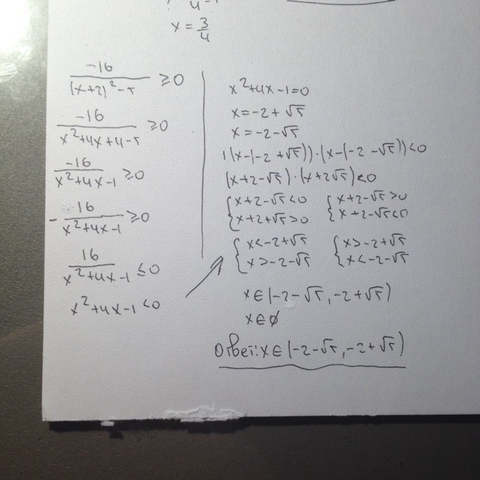 x = 3/4
-16/((x+2)²-5) ≥ 0
-16/(x²+4x+4-5) ≥ 0
-16/(x²+4x-1) ≥ 0
-16/(x²+4x-1) ≥ 0
16/(x²+4x-1) ≤ 0
x²+4x-1<0
x²+4x-1=0
x=-2+√5
x=-2-√5
1(x-(-2+√5))·(x-(-2-√5))<0
(x+2-√5)·(x+2√5)<0
{x+2-√5<0 {x+2-√5>0
{x+2+√5>0 {x+2-√5<0
{x<-2+√5 {x>-2+√5
{x>-2-√5 {x<-2-√5
x∈(-2-√5,-2+√5)
x∈∅
Ответ:x∈(-2-√5,-2+√5)